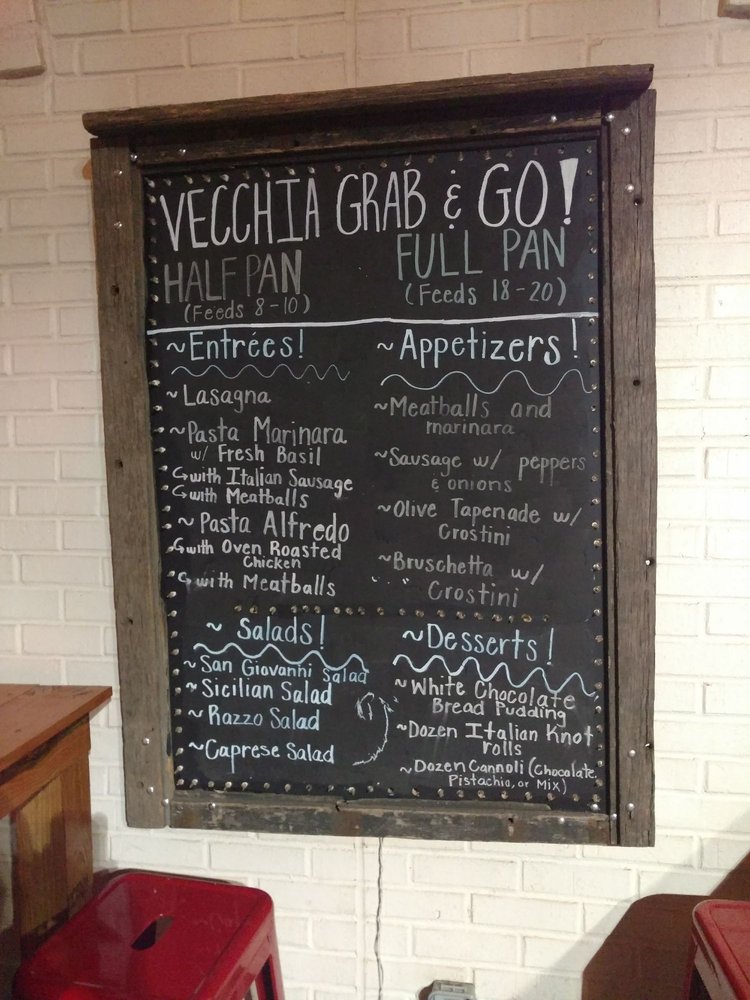 VECCHIA GRAB & GO!
HALF PAN
(Feeds 8-10)
FULL PAN
(Feeds 18-20)
~Entrées!
~Lasagna
~Pasta Marinara
w/ Fresh Basil
↳with Italian Sausage
↳with Meatballs
~Pasta Alfredo
↳with Oven Roasted
Chicken
↳with Meatballs
~Appetizers!
~Meatballs and
marinara
~Sausage w/ peppers
& onions
~Olive Tapenade w/
Crostini
~Bruschetta w/
Crostini
~Salads!
~San Giovanni Salad
~Sicilian Salad
~Razzo Salad
~Caprese Salad
~Desserts!
~White Chocolate
Bread Pudding
~Dozen Italian Knot
rolls
~Dozen Cannoli (Chocolate,
Pistachio, or Mix)